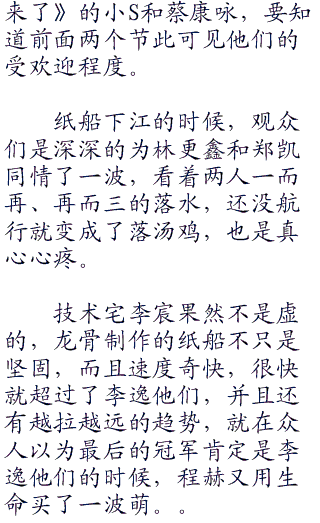 来了》的小S和蔡康咏，要知
道前面两个节此可见他们的
受欢迎程度。
纸船下江的时候，观众
们是深深的为林更鑫和郑凯
同情了一波，看着两人一而
再、再而三的落水，还没航
行就变成了落汤鸡，也是真
心心疼。
技术宅李宸果然不是虚
的，龙骨制作的纸船不只是
坚固，而且速度奇快，很快
就超过了李逸他们，并且还
有越拉越远的趋势，就在众
人以为最后的冠军肯定是李
逸他们的时候，程赫又用生
命买了一波萌。。